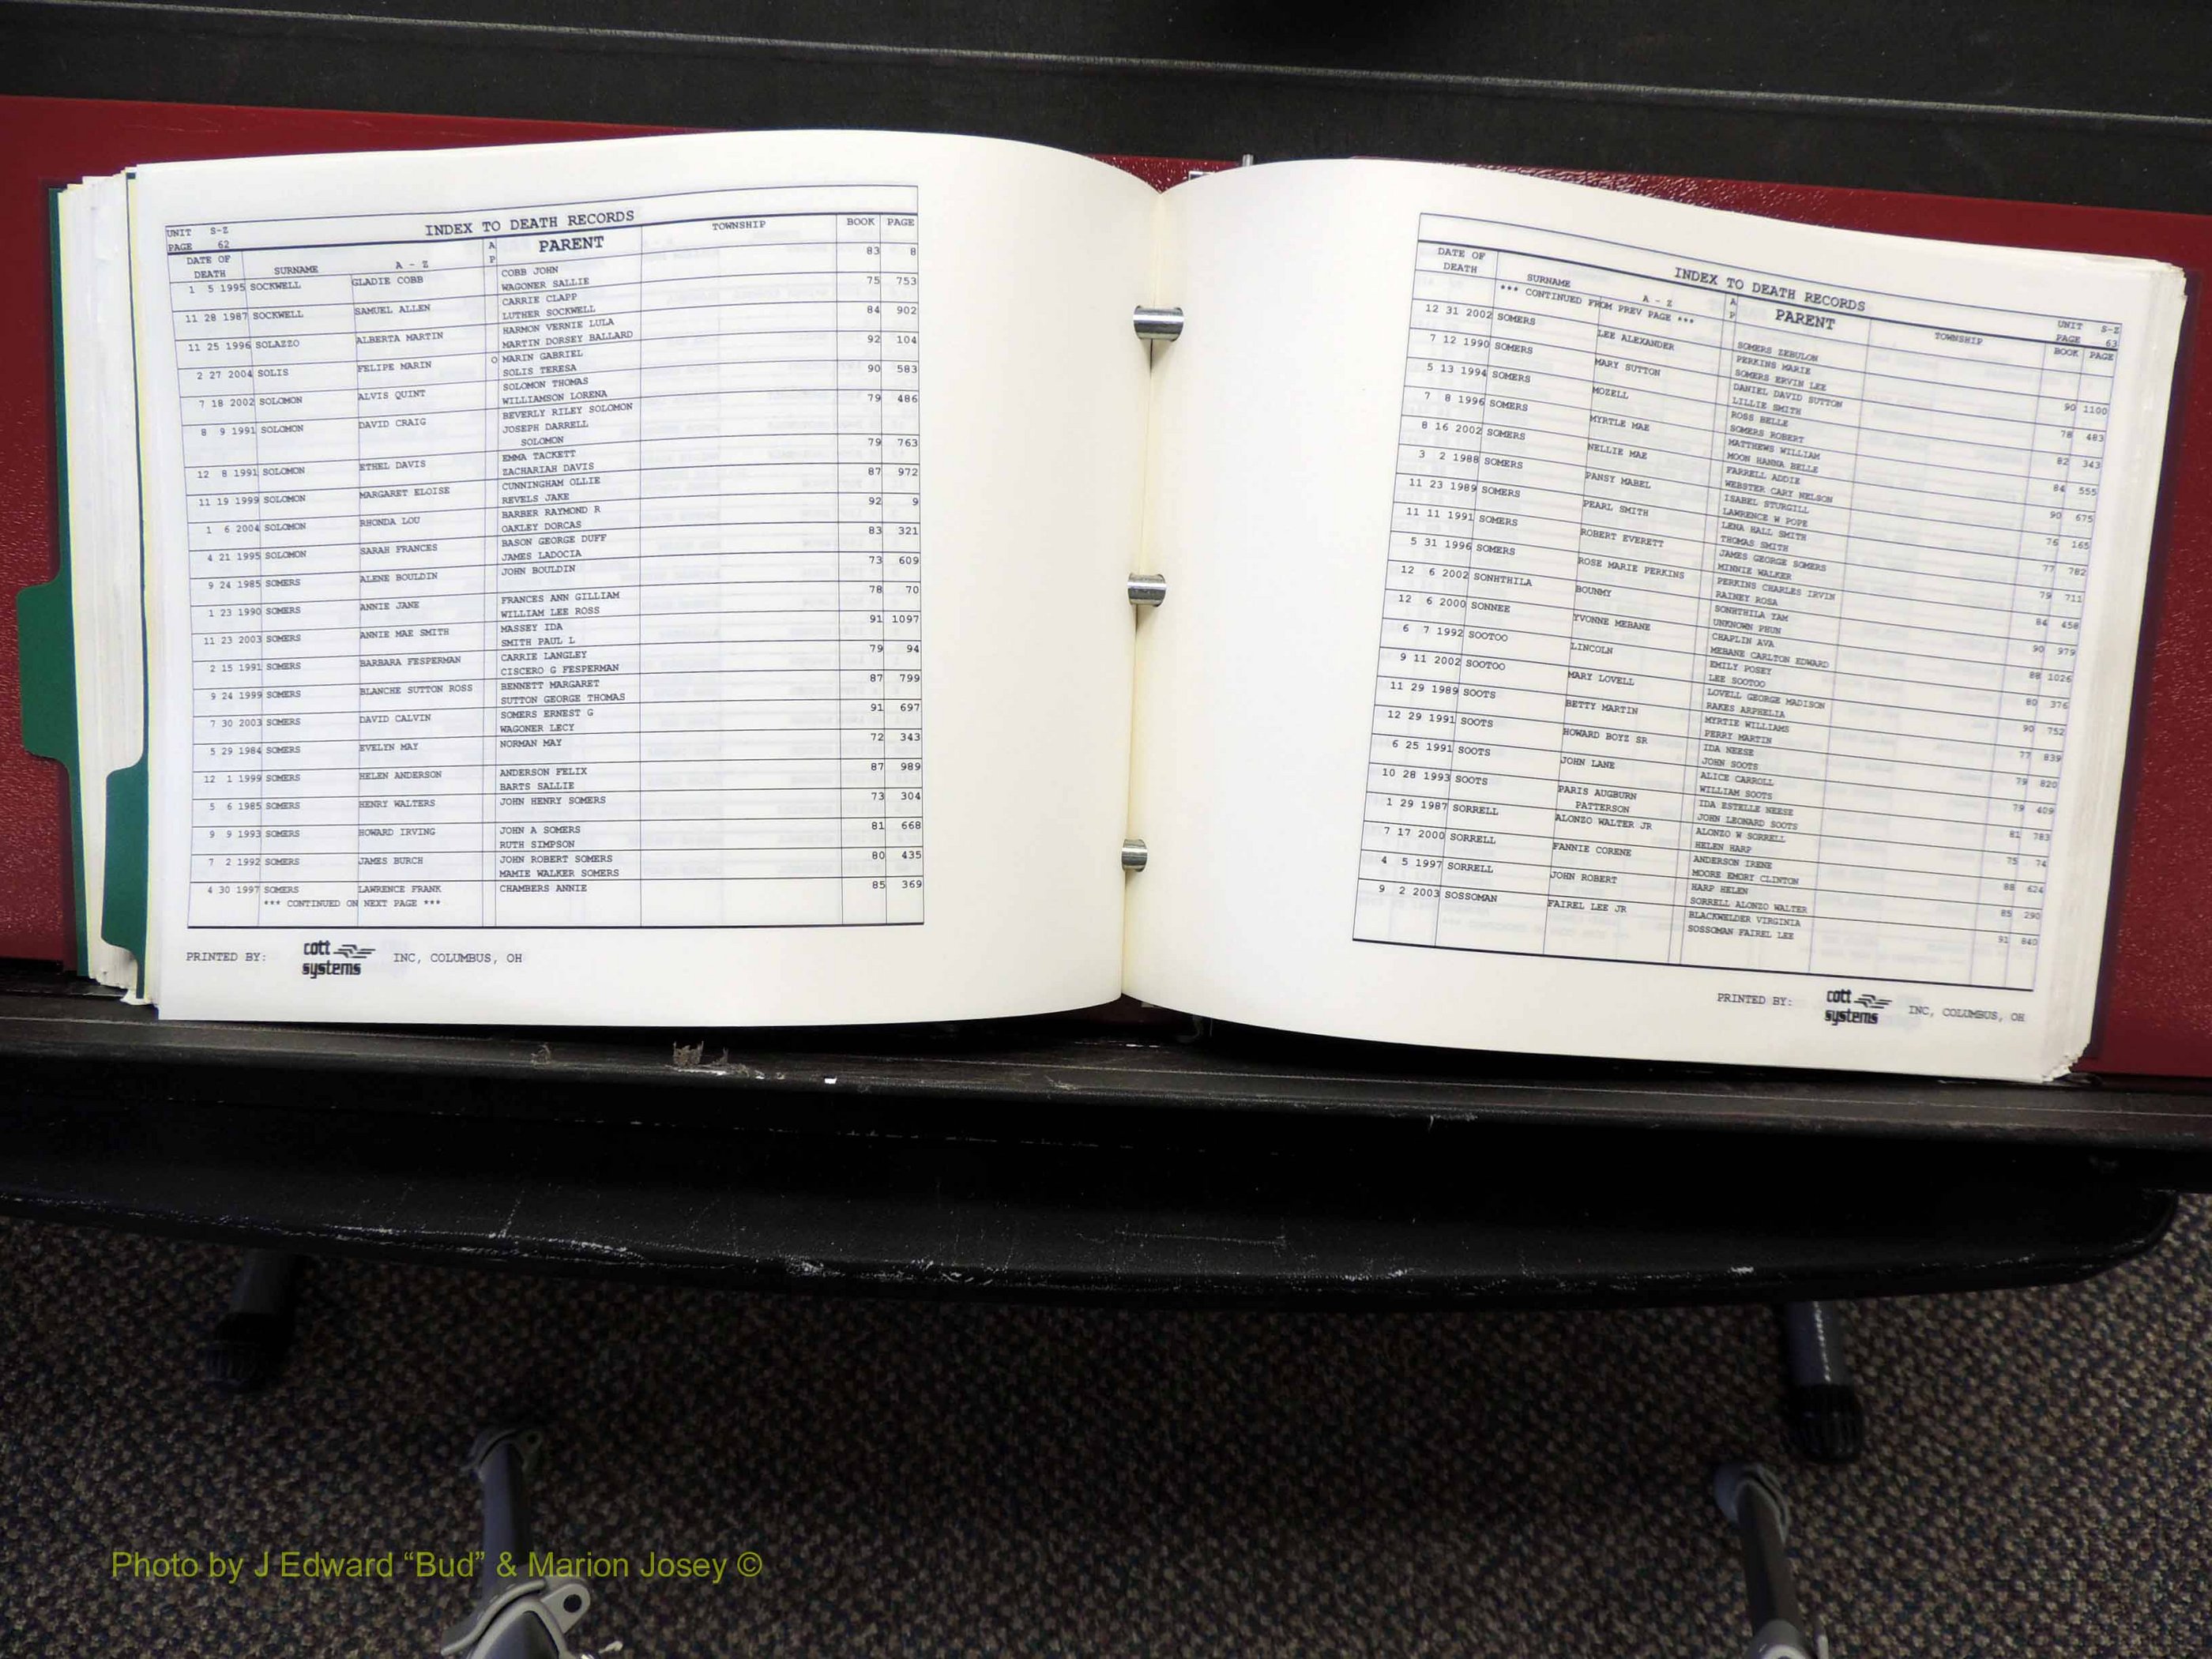 UNIT S-Z
PAGE 62
INDEX TO DEATH RECORDS
DATE OF DEATH SURNAME A - Z A P PARENT TOWNSHIP BOOK PAGE
1 5 1995 SOCKWELL GLADIE COBB COBB JOHN 83 8
WAGONER SALLIE
11 28 1987 SOCKWELL SAMUEL ALLEN CARRIE CLAPP 75 753
LUTHER SOCKWELL
11 25 1996 SOLAZZO ALBERTA MARTIN HARMON VERNIE LULA 84 902
MARTIN DORSEY BALLARD
2 27 2004 SOLIS FELIPE MARIN O MARIN GABRIEL 92 104
SOLIS TERESA
7 18 2002 SOLOMON ALVIS QUINT SOLOMON THOMAS 90 583
WILLIAMSON LORENA
8 9 1991 SOLOMON DAVID CRAIG BEVERLY RILEY SOLOMON 79 486
JOSEPH DARRELL
SOLOMON
12 8 1991 SOLOMON ETHEL DAVIS EMMA TACKETT 79 763
ZACHARIAH DAVIS
11 19 1999 SOLOMON MARGARET ELOISE CUNNINGHAM OLLIE 87 972
REVELS JAKE
1 6 2004 SOLOMON RHONDA LOU BARBER RAYMOND R 92 9
OAKLEY DORCAS
4 21 1995 SOLOMON SARAH FRANCES BASON GEORGE DUFF 83 321
JAMES LADOCIA
9 24 1985 SOMERS ALENE BOULDIN JOHN BOULDIN 73 609
1 23 1990 SOMERS ANNIE JANE FRANCES ANN GILLIAM 78 70
WILLIAM LEE ROSS
11 23 2003 SOMERS ANNIE MAE SMITH MASSEY IDA 91 1097
SMITH PAUL L
2 15 1991 SOMERS BARBARA FESPERMAN CARRIE LANGLEY 79 94
CISCERO G FESPERMAN
9 24 1999 SOMERS BLANCHE SUTTON ROSS BENNETT MARGARET 87 799
SUTTON GEORGE THOMAS
7 30 2003 SOMERS DAVID CALVIN SOMERS ERNEST G 91 697
WAGONER LECY
5 29 1984 SOMERS EVELYN MAY NORMAN MAY 72 343
12 1 1999 SOMERS HELEN ANDERSON ANDERSON FELIX 87 989
BARTS SALLIE
5 6 1985 SOMERS HENRY WALTERS JOHN HENRY SOMERS 73 304
9 9 1993 SOMERS HOWARD IRVING JOHN A SOMERS 81 668
RUTH SIMPSON
7 2 1992 SOMERS JAMES BURCH JOHN ROBERT SOMERS 80 435
MAMIE WALKER SOMERS
4 30 1997 SOMERS LAWRENCE FRANK CHAMBERS ANNIE 85 369
*** CONTINUED ON NEXT PAGE ***
PRINTED BY: cott systems INC, COLUMBUS, OH
INDEX TO DEATH RECORDS
UNIT S-Z
PAGE 63
DATE OF DEATH SURNAME A - Z A P PARENT TOWNSHIP BOOK PAGE
*** CONTINUED FROM PREV PAGE ***
SOMERS ZEBULON
12 31 2002 SOMERS LEE ALEXANDER PERKINS MARIE 90 1100
SOMERS ERVIN LEE
7 12 1990 SOMERS MARY SUTTON DANIEL DAVID SUTTON 78 483
LILLIE SMITH
5 13 1994 SOMERS MOZELL ROSS BELLE 82 343
SOMERS ROBERT
7 8 1996 SOMERS MYRTLE MAE MATTHEWS WILLIAM 84 555
MOON HANNA BELLE
8 16 2002 SOMERS NELLIE MAE FARRELL ADDIE 90 675
WEBSTER CARY NELSON
3 2 1988 SOMERS PANSY MABEL ISABEL STURGILL 76 165
LAWRENCE W POPE
11 23 1989 SOMERS PEARL SMITH LENA HALL SMITH 77 782
THOMAS SMITH
11 11 1991 SOMERS ROBERT EVERETT JAMES GEORGE SOMERS 79 711
MINNIE WALKER
5 31 1996 SOMERS ROSE MARIE PERKINS PERKINS CHARLES IRVIN 84 458
RAINEY ROSA
12 6 2002 SONHTHILA BOUNMY SONHTHILA YAM 90 979
UNKNOWN PHUN
12 6 2000 SONNEE YVONNE MEBANE CHAPLIN AVA 88 1026
MEBANE CARLTON EDWARD
6 7 1992 SOOTOO LINCOLN EMILY POSEY 80 376
LEE SOOTOO
9 11 2002 SOOTOO MARY LOVELL LOVELL GEORGE MADISON 90 752
RAKES ARPHELIA
11 29 1989 SOOTS BETTY MARTIN MYRTIE WILLIAMS 77 839
PERRY MARTIN
12 29 1991 SOOTS HOWARD BOYZ SR IDA NEESE 79 820
JOHN SOOTS
6 25 1991 SOOTS JOHN LANE ALICE CARROLL 79 409
WILLIAM SOOTS
10 28 1993 SOOTS PARIS AUGBURN IDA ESTELLE NEESE 81 783
PATTERSON JOHN LEONARD SOOTS
1 29 1987 SORRELL ALONZO WALTER JR ALONZO W SORRELL 75 74
HELEN HARP
7 17 2000 SORRELL FANNIE CORENE ANDERSON IRENE 88 624
MOORE EMORY CLINTON
4 5 1997 SORRELL JOHN ROBERT HARP HELEN 85 290
SORRELL ALONZO WALTER
9 2 2003 SOSSOMAN FAIREL LEE JR BLACKWELDER VIRGINIA 91 840
SOSSOMAN FAIREL LEE
PRINTED BY: cott systems INC, COLUMBUS, OH
Photo by J Edward “Bud” & Marion Josey ©